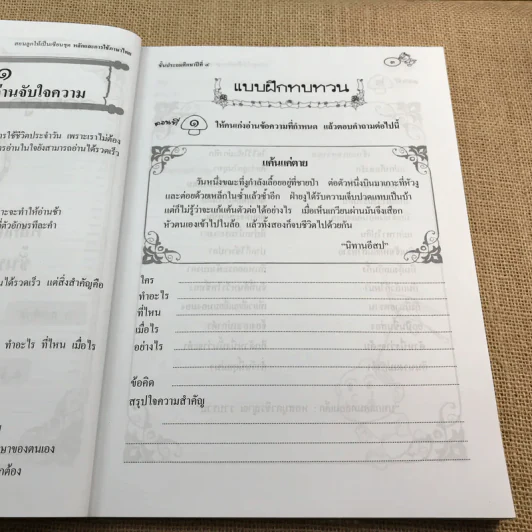 สอนลูกให้เป็นเซียนชุด หลักและการใช้ภาษาไทย
๑
านจับใจความ
รใช้ชีวิตประจำวัน เพราะเราไม่ต้อง
ารอ่านในใจยังสามารถอ่านได้รวดเร็ว
าะจะทำให้อ่านช้า
ที่ตัวอักษรทีละคำ
นได้รวดเร็ว แต่สิ่งสำคัญคือ
ทำอะไร ที่ไหน เมื่อไร
ษาของตนเอง
ต้อง
ชั้นประถมศึกษาปีที่ ๔
๓
แบบฝึกทบทวน
ตอนที่ ๑ ให้คนเก่งอ่านข้อความที่กำหนด แล้วตอบคำถามต่อไปนี้
แค้นแค่ตาย
วันหนึ่งขณะที่งูกำลังเลื้อยอยู่ที่ชายป่า ต่อตัวหนึ่งบินมาเกาะที่หัวงู
และต่อยด้วยเหล็กในซ้ำแล้วซ้ำอีก ฝ่ายงูได้รับความเจ็บปวดแทบเป็นบ้า
แต่ก็ไม่รู้ว่าจะแก้แค้นตัวต่อได้อย่างไร เมื่อเห็นเกวียนผ่านมันจึงเสือก
หัวตนเองเข้าไปในล้อ แล้วทั้งสองก็จบชีวิตไปด้วยกัน
"นิทานอีสป"
ใคร
ทำอะไร
ที่ไหน
เมื่อไร
อย่างไร
ข้อคิด
สรุปใจความสำคัญ